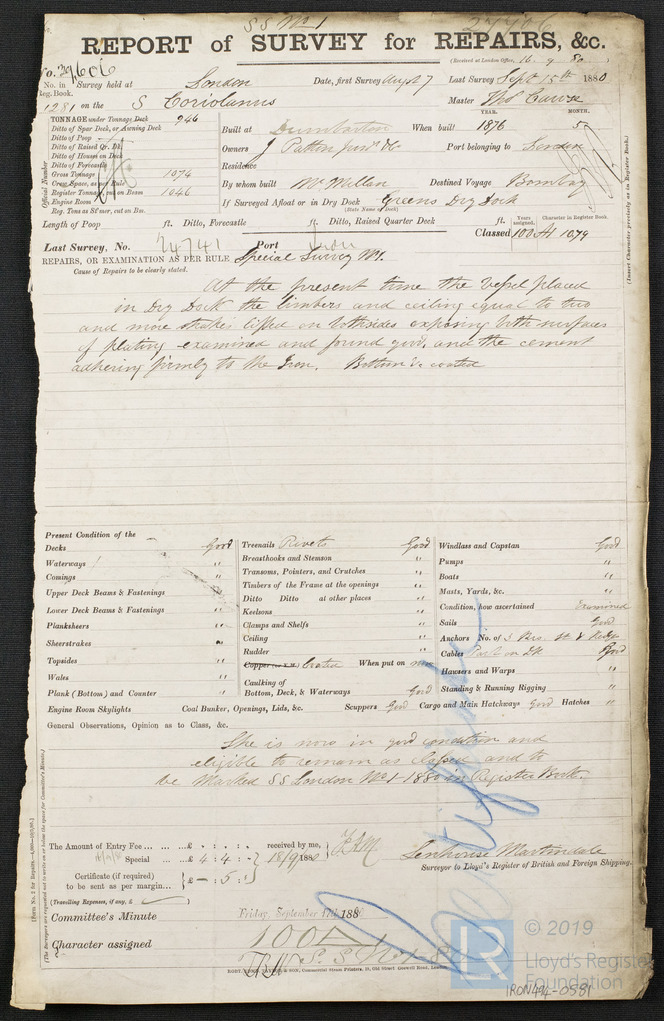 S S No 1
27406
REPORT of SURVEY for REPAIRS, &c.
(Received at London Office, 16. 9 80.)
No. Survey held at London Date, first Survey Augt 7 Last Survey Sept 15th 1880
No. in Reg. Book.
1281 on the S Coriolanus Master Thos Cawse
TONNAGE under Tonnage Deck 946
Ditto of Spar Deck, or Awning Deck
Ditto of Poop
Ditto of Raised Qr. Dk.
Ditto of Houses on Deck
Ditto of Forecastle
Gross Tonnage 1074
Crew Space, as per Rule
Register Tonnage, cut on Beam 1046
Engine Room
Reg. Tons as St'mer, cut on Bm.
Official Number
YEAR. MONTH.
Built at Dumbarton When built 1876 5
Owners J Patton Junr & Co Port belonging to London
Residence
By whom built McMillan Destined Voyage Bombay
If Surveyed Afloat or in Dry Dock Greens Dry Dock
(State Name of Dock)
Length of Poop ft. Ditto, Forecastle ft. Ditto, Raised Quarter Deck ft.
Years assigned. Character in Register Book.
Classed 100 A1 10,79
(Insert Character precisely as in Register Book.)
Last Survey, No. 24741 Port Lon
REPAIRS, OR EXAMINATION AS PER RULE Special Survey No 1.
Cause of Repairs to be clearly stated.
At the present time the Vessel placed
in Dry Dock the limbers and ceiling equal to two
and more strakes lifted on both sides exposing both surfaces
of plating examined and found good, and the cement
adhering firmly to the Iron. Bottom &c coated
Present Condition of the
Decks Good
Waterways "
Comings "
Upper Deck Beams & Fastenings "
Lower Deck Beams & Fastenings "
Planksheers "
Sheerstrakes "
Topsides "
Wales "
Plank (Bottom) and Counter "
Treenails Rivets Good
Breasthooks and Stemson "
Transoms, Pointers, and Crutches "
Timbers of the Frame at the openings "
Ditto Ditto at other places "
Keelsons "
Clamps and Shelfs "
Ceiling "
Rudder "
Copper (or Y.M.) Coated When put on now
Caulking of
Bottom, Deck, & Waterways Good
Windlass and Capstan Good
Pumps "
Boats "
Masts, Yards, &c. "
Condition, how ascertained Examined
Sails Good
Anchors No. of 3 Brs. St & Kedge
Cables Part on Dk Good
Hawsers and Warps "
Standing & Running Rigging "
Engine Room Skylights Coal Bunker, Openings, Lids, &c. Scuppers Good Cargo and Main Hatchways Good Hatches "
General Observations, Opinion as to Class, &c.
She is now in good condition and
eligible to remain as Classed and to
be Marked SS London No 1 - 1880 in Register Book.
The Amount of Entry Fee £ : : received by me,
Special £ 4 : 4 : - 18/9/1880
Certificate (if required) to be sent as per margin £ - : 5 :
(Travelling Expenses, if any, £ )
Lenhouse Martindale
Surveyor to Lloyd's Register of British and Foreign Shipping.
Committee's Minute Friday, September 17th 1880
Character assigned 100A1
S.S. No 1 - 80
© 2019
LR
Lloyd's Register
Foundation
IRON494-0581